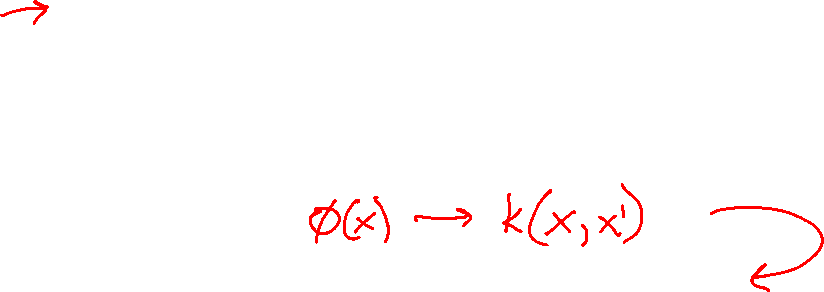 ϕ(x) → k(x, x')